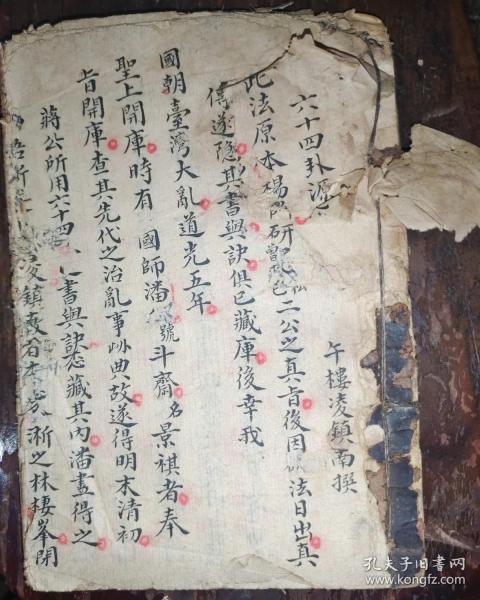 六十四卦源
午樓凌鎮南撰
此法原本楊 研 二公之真旨後因 法日出真
傳遂隱其書與訣俱已藏庫後幸我
國朝臺灣大亂道光五年
聖上開庫時有 國師潘 號斗齋名景祺者奉
旨開庫查其先代之治亂事 典故遂得明末清初
蔣公所用六十四 書與訣悉藏其內潘盡得之
鎮 浙之林棲峯閉
孔夫子旧书网
www.kongfz.com